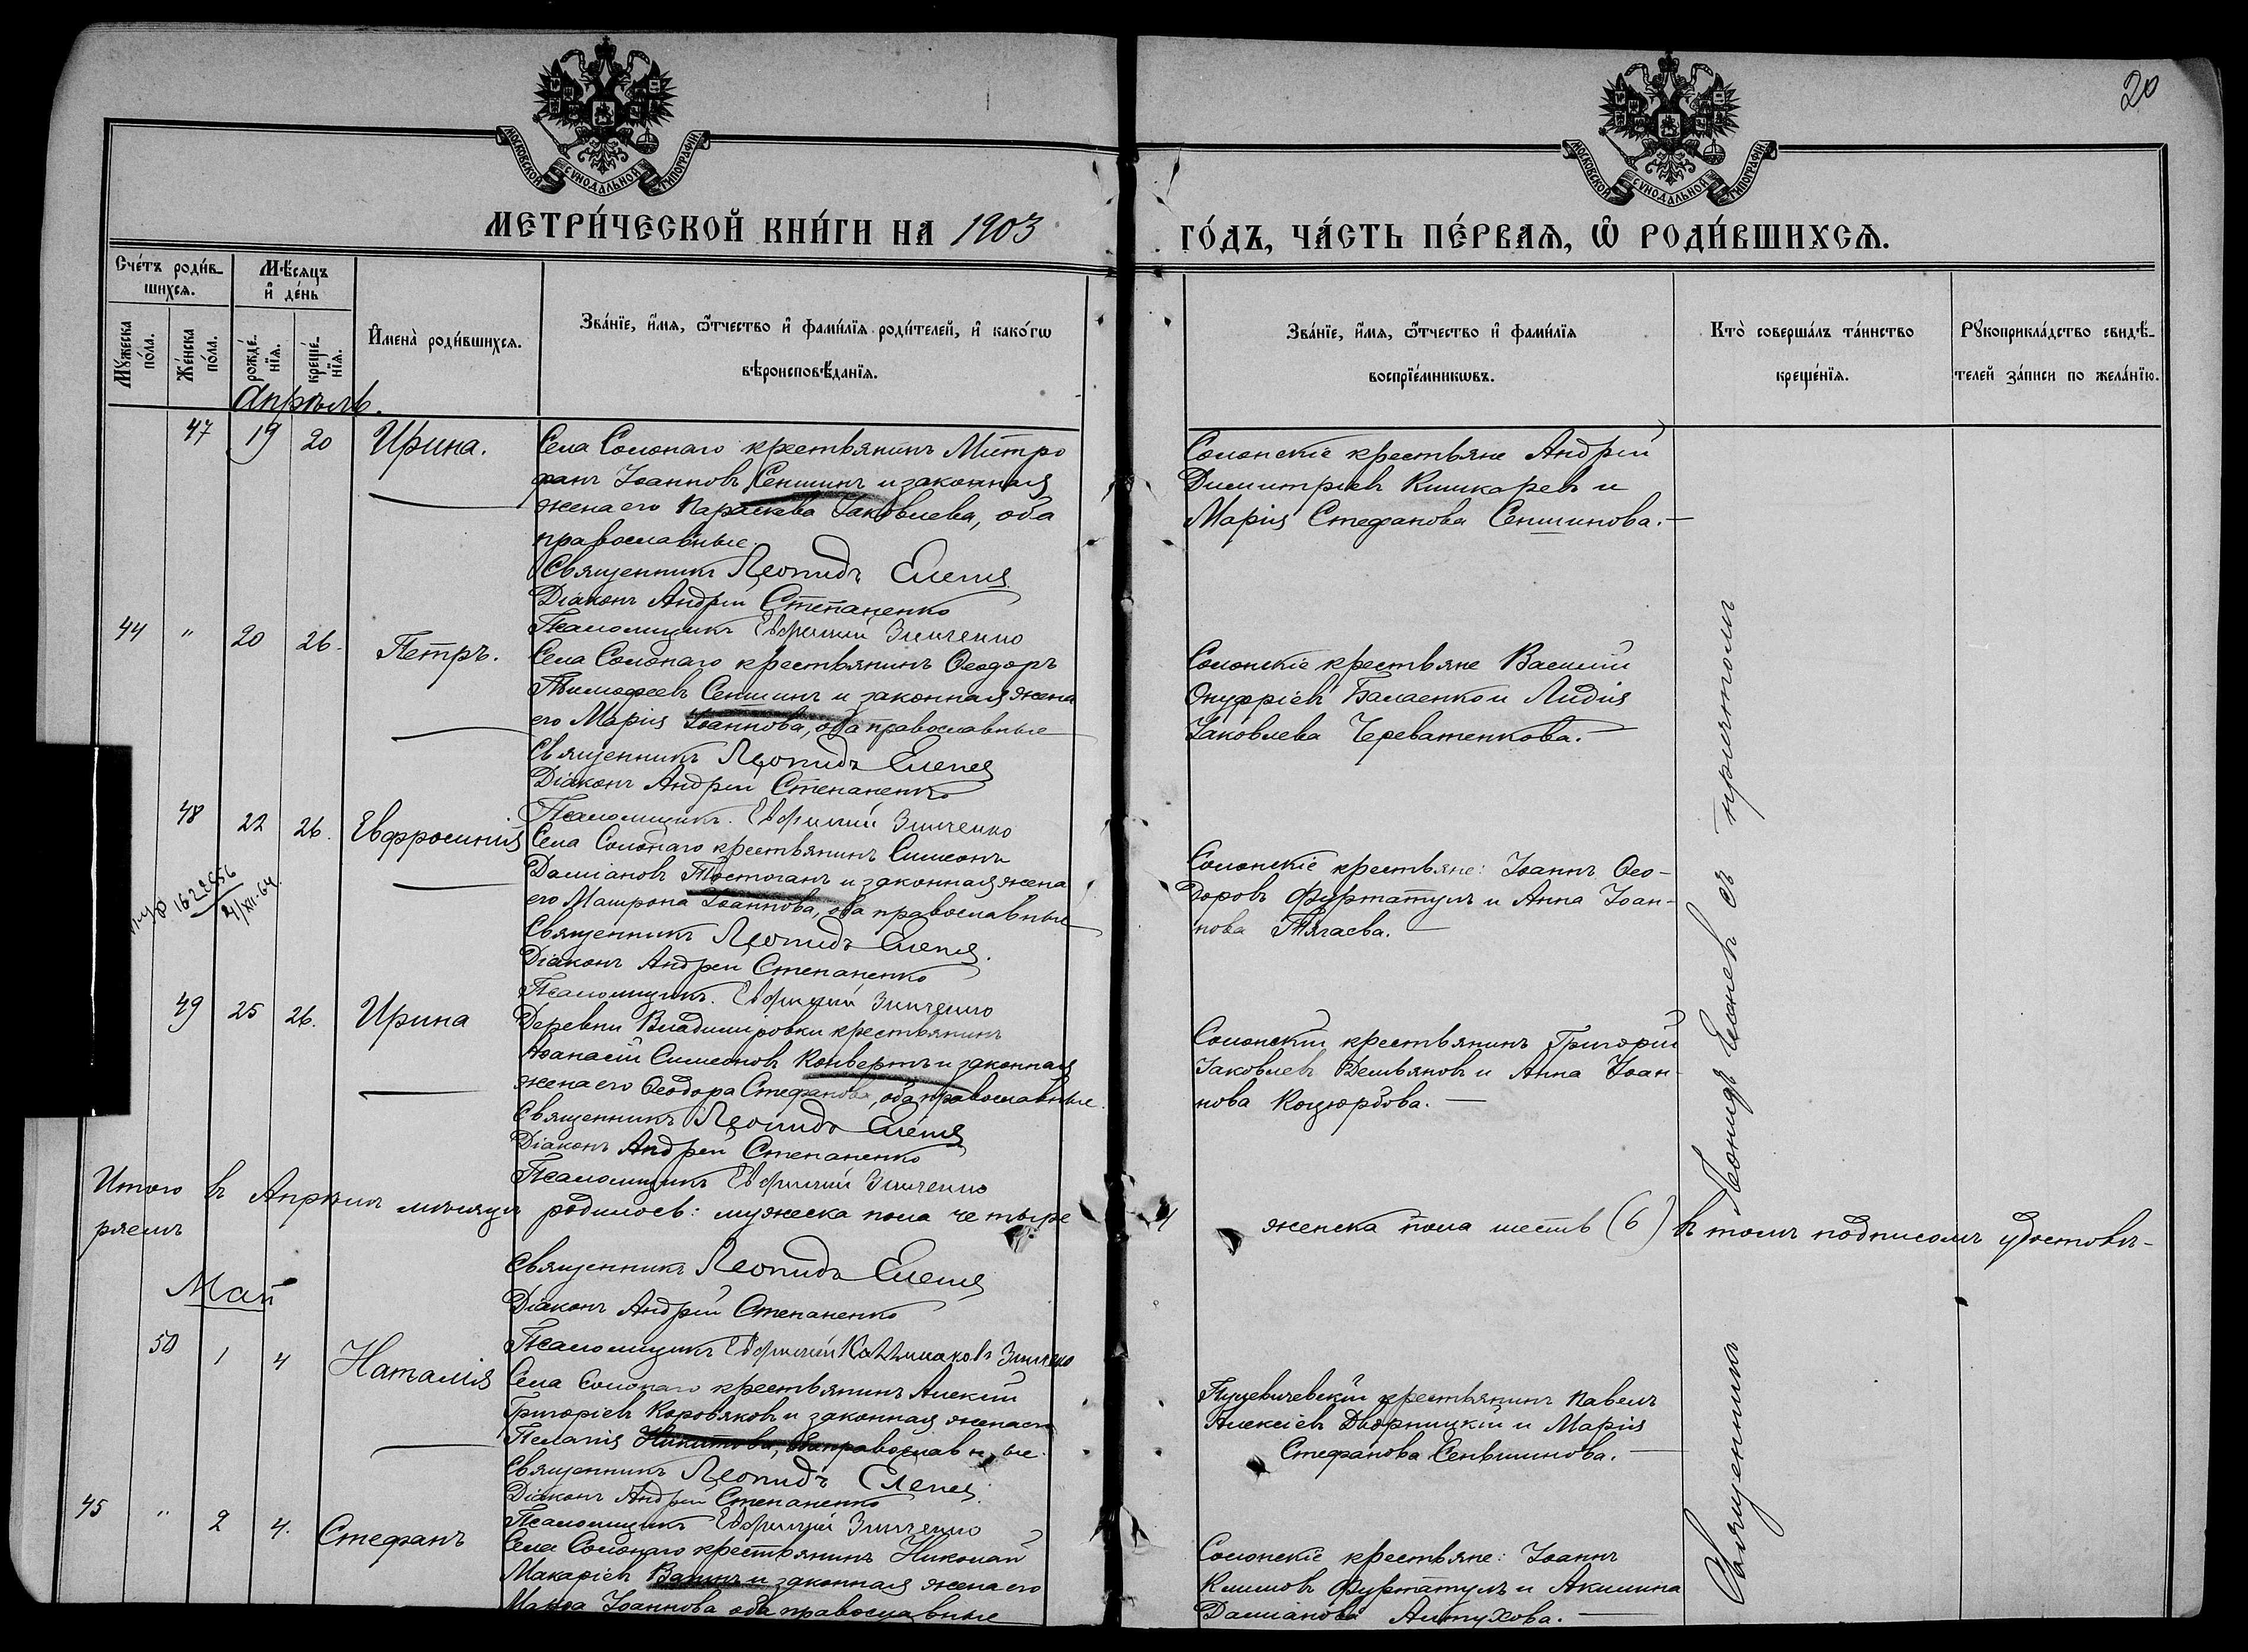 20
МОСКОВСКОЙ СѴНОДАЛЬНОЙ ТИПОГРАФІИ
МОСКОВСКОЙ СѴНОДАЛЬНОЙ ТИПОГРАФІИ
МЕТРИ́ЧЕСКОЙ КНИ́ГИ НА 1903
ГО́ДЪ, ЧА́СТЬ ПЕ́РВАѦ, Ѡ҆ РОДИ́ВШИХСѦ.
Сче́тъ роди́в-
шихсѧ.
Мѣ́сяцъ
и҆ де́нь
Мꙋ́жеска
по́ла.
Же́нска
по́ла.
рожде́-
нїѧ.
креще́-
нїѧ.
И҆мена̀ роди́вшихсѧ.
Зва́нїе, и҆́мѧ, ѻ҆́тчество и҆ фами́лїѧ роди́телей, и҆ како́гѡ
вѣроисповѣ́данїѧ.
Зва́нїе, и҆́мѧ, ѻ҆́тчество и҆ фами́лїѧ
воспрїе́мникѡвъ.
Кто̀ соверша́лъ та́инство
креще́нїѧ.
Рꙋкоприкла́дство свидѣ́-
телей за́писи по жела́нїю.
Апрѣль.
47 19 20 Ирина.
Села Солонаго крестьянинъ Митро
фанъ Іоанновъ Сеншинъ и законная
жена его Параскева Іаковлева, оба
православные.
Священникъ Леонидъ
Діаконъ Андрей Степаненко
Псаломщикъ Евфимий Зинченко
Солонскіе крестьяне Андрей
Димитріевъ Кишкаревъ и
Марія Стефанова Сеншинова.—
44 " 20 26. Петръ.
Села Солонаго крестьянинъ Ѳеодоръ
Тимофеевъ Сеншинъ и законная жена
его Марія Іоаннова, оба православные
Священникъ Леонидъ
Діаконъ Андрей Степаненко
Псаломщикъ. Евфимий Зинченко
Солонскіе крестьяне Василій
Онуфріевъ Балаенко и Лидія
Іаковлева Череватенкова.—
48 22 26. Евфросинія
Села Солонаго крестьянинъ Симеонъ
Даміановъ Тостоганъ и законная жена
его Матрона Іоаннова, оба православные
Священникъ Леонидъ
Діаконъ Андрей Степаненко
Псаломщикъ. Евфимий Зинченко
Солонскіе крестьяне: Іоаннъ Ѳео-
доровъ Фуртатулъ и Анна Іоан-
нова Тягаева.—
49 25 26. Ирина
Деревни Владимировки крестьянинъ
Аѳанасій Симеоновъ Конвертъ и законная
жена его Ѳеодора Стефанова, оба православные.
Священникъ Леонидъ
Діаконъ Андрей Степаненко
Псаломщикъ Евфимий Зинченко
Солонскій крестьянинъ Григорій
Іаковлевъ Демьяновъ и Анна Іоан-
нова Коцюрбова.—
Итого въ Апрѣлѣ мѣсяцѣ родилось: мужеска пола четыре 4 женска пола шесть (6) въ томъ подписомъ удостовѣ-
ряемъ
Священникъ Леонидъ
Діаконъ Андрей Степаненко
Псаломщикъ Евфимий Зинченко
Май
50 1 4 Наталія
Села Солонаго крестьянинъ Алексій
Григоріевъ Коровяковъ и законная жена его
Пелагія Никитова, оба православные.
Священникъ Леонидъ
Діаконъ Андрей Степаненко
Псаломщикъ Евфимий Зинченко
крестьянинъ Павелъ
Алексіевъ Дворницкій и Марія
Стефанова Сеньшинова.—
45 " 2 4. Стефанъ
Села Солонаго крестьянинъ Николай
Макаріевъ Вапинъ и законная жена его
Марѳа Іоаннова оба православные
Солонскіе крестьяне: Іоаннъ
Климовъ Фуртатулъ и Акилина
Даміанова Алтухова.—
Священникъ Леонидъ съ причтомъ